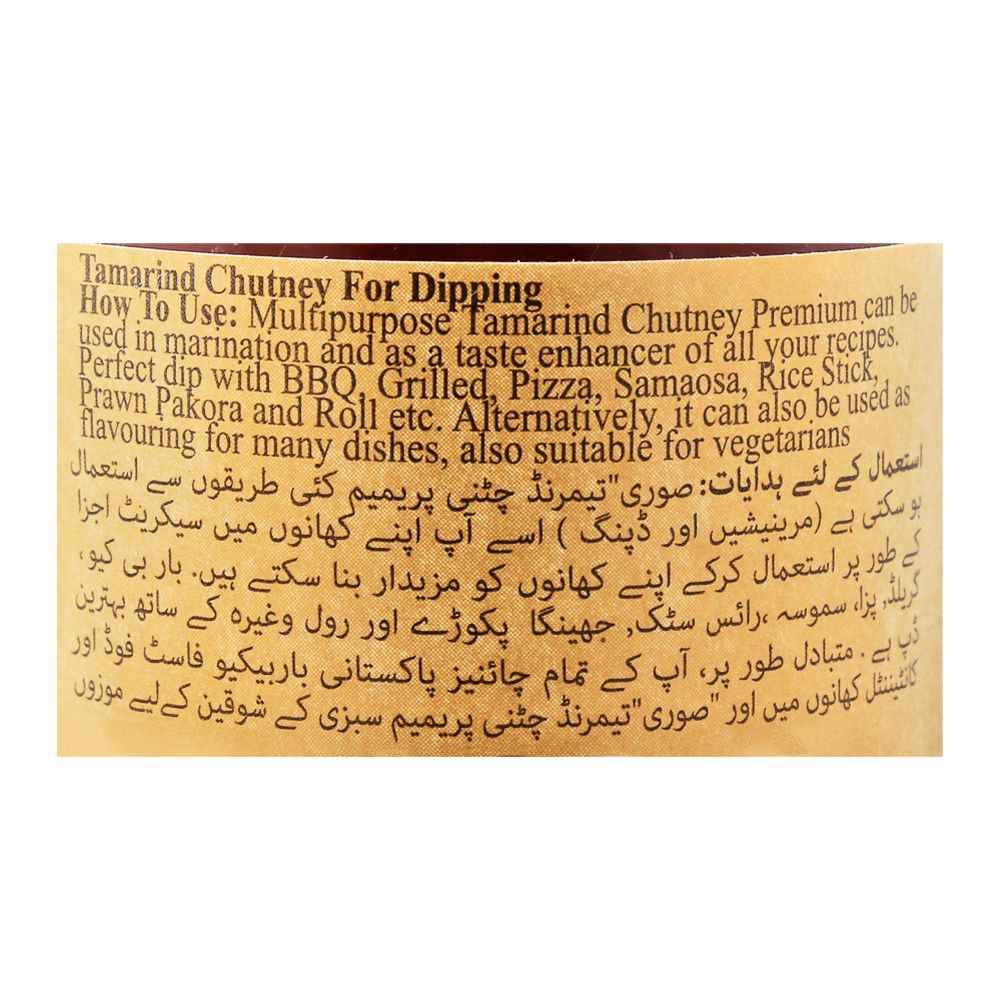 Tamarind Chutney For Dipping
How To Use: Multipurpose Tamarind Chutney Premium can be
used in marination and as a taste enhancer of all your recipes.
Perfect dip with BBQ, Grilled, Pizza, Samaosa, Rice Stick,
Prawn Pakora and Roll etc. Alternatively, it can also be used as
flavouring for many dishes, also suitable for vegetarians
استعمال کے لئے ہدایات: صوری"تیمرنڈ چٹنی پریمیم کئی طریقوں سے استعمال
ہو سکتی ہے (مرینیشیں اور ڈپنگ ) اسے آپ اپنے کھانوں میں سیکریٹ اجزا
کے طور پر استعمال کرکے اپنے کھانوں کو مزیدار بنا سکتے ہیں. بار بی کیو،
گریلڈ, پزا، سموسہ ،رائس سٹک, جھینگا پکوڑے اور رول وغیرہ کے ساتھ بہترین
ڈپ ہے . متبادل طور پر، آپ کے تمام چائنیز پاکستانی باربیکیو فاسٹ فوڈ اور
کانٹیننٹل کھانوں میں اور "صوری"تیمرنڈ چٹنی پریمیم سبزی کے شوقین کےلیے موزوں